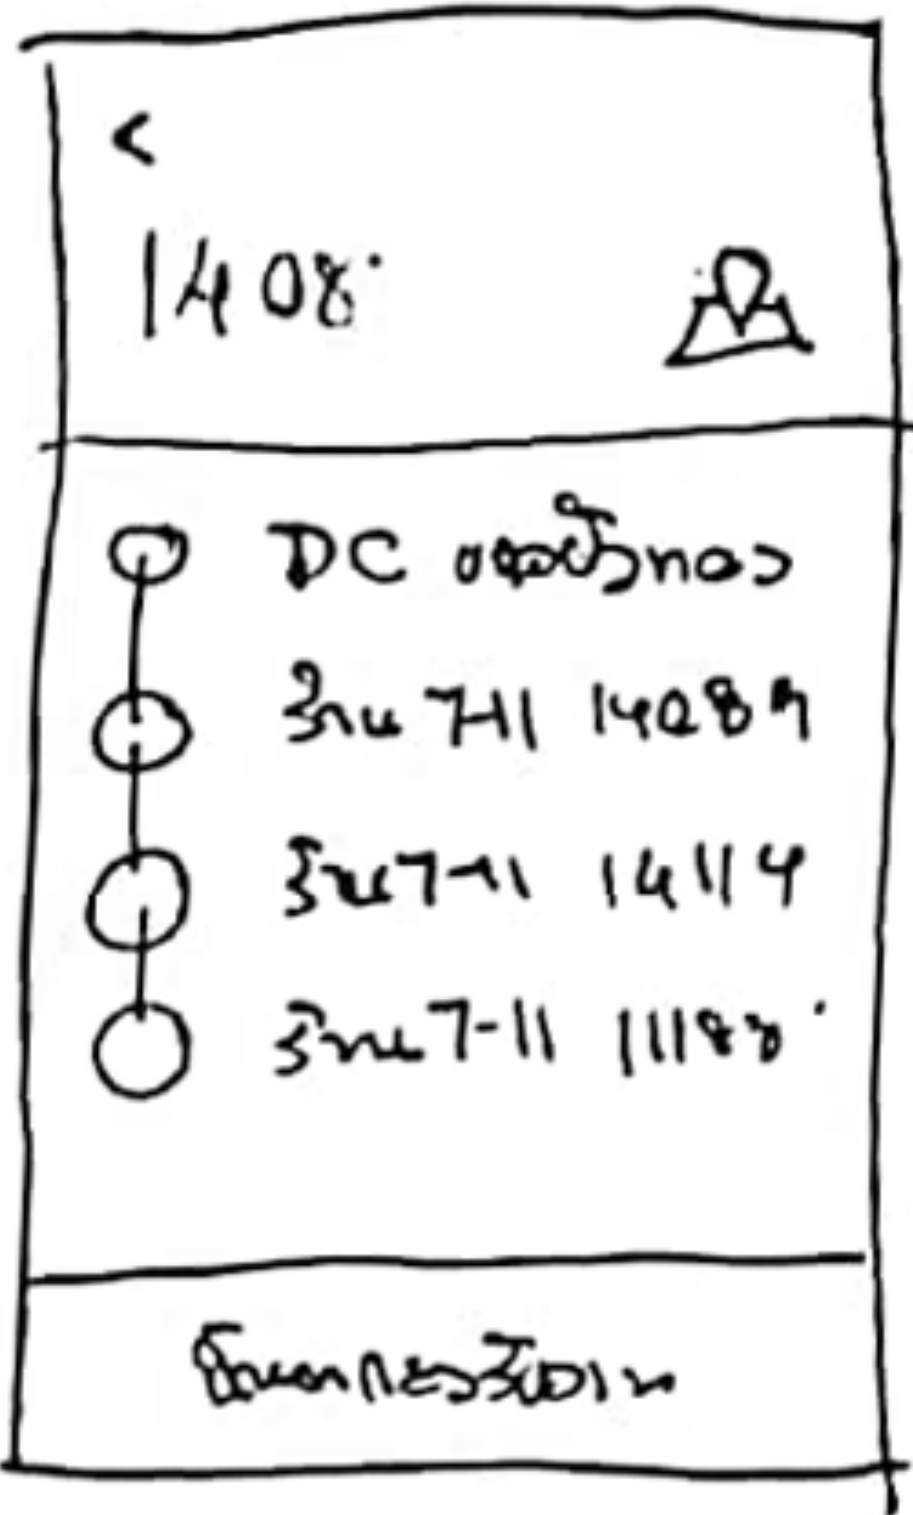 <
1408
DC บางบัวทอง
ร้าน 7-11 14089
ร้าน 7-11 14114
ร้าน 7-11 11188